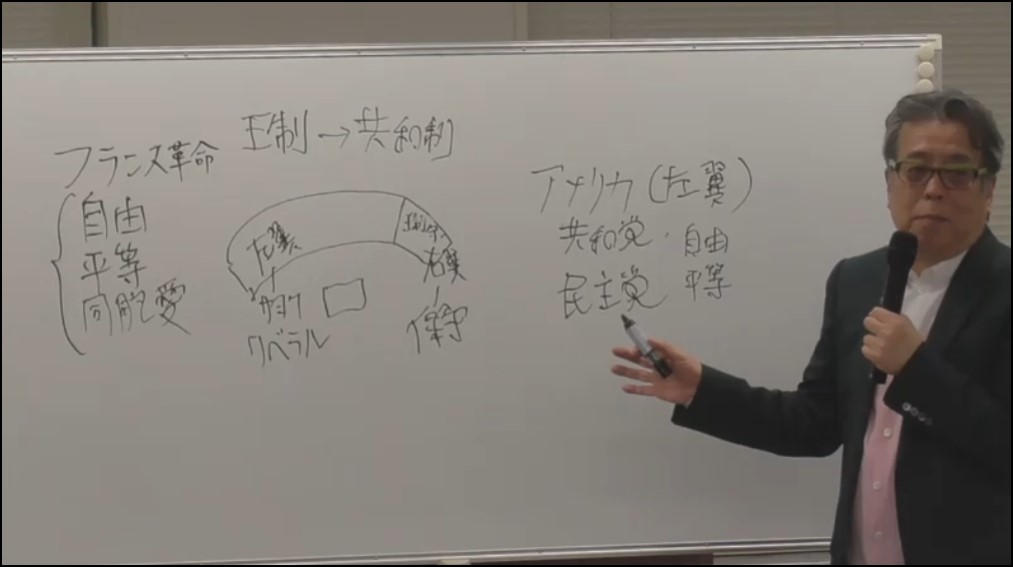 王制→共和制
フランス革命
自由
平等
同胞愛
左翼
サヨク
リベラル
右翼
保守
アメリカ(左翼)
共和党・自由
民主党 平等